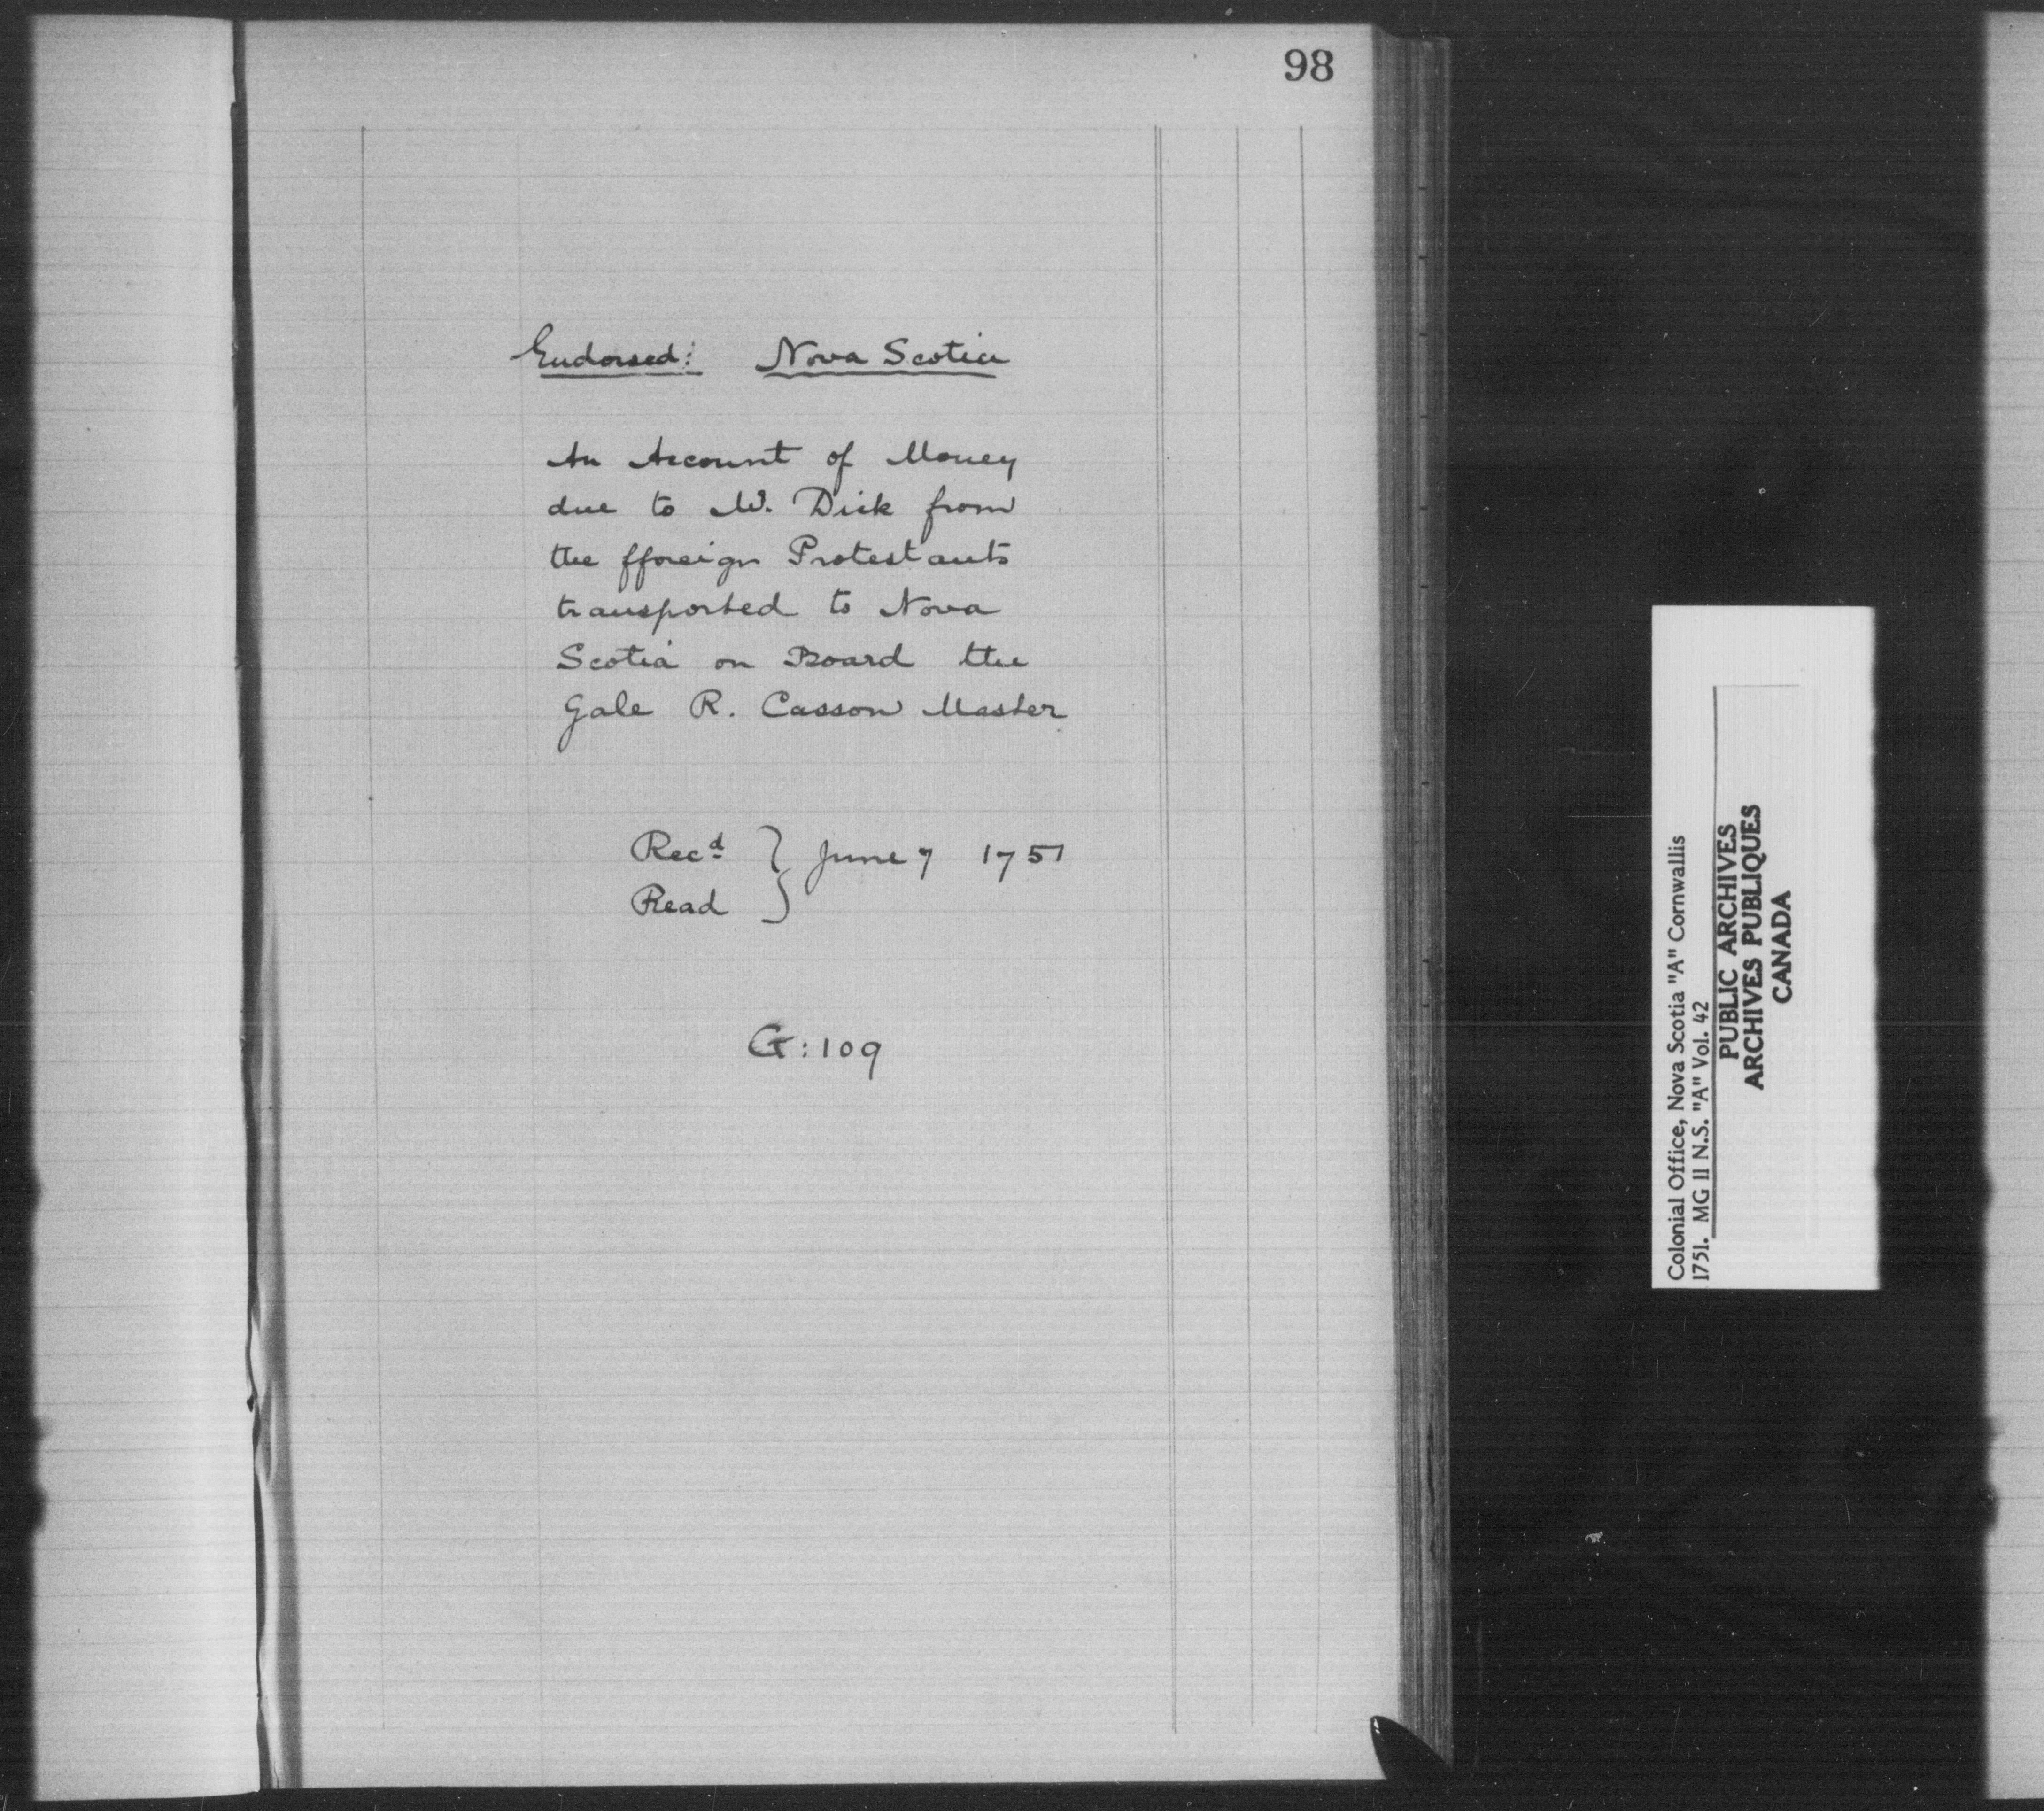 98
Endorsed: Nova Scotia
An Account of Money
due to Mr. Dick from
the fforeign Protestants
transported to Nova
Scotia on Board the
Gale R. Casson Master
Recd } June 7 1751
Read }
G: 109
Colonial Office, Nova Scotia "A" Cornwallis
1751. MG 11 N.S. "A" Vol. 42
PUBLIC ARCHIVES
ARCHIVES PUBLIQUES
CANADA